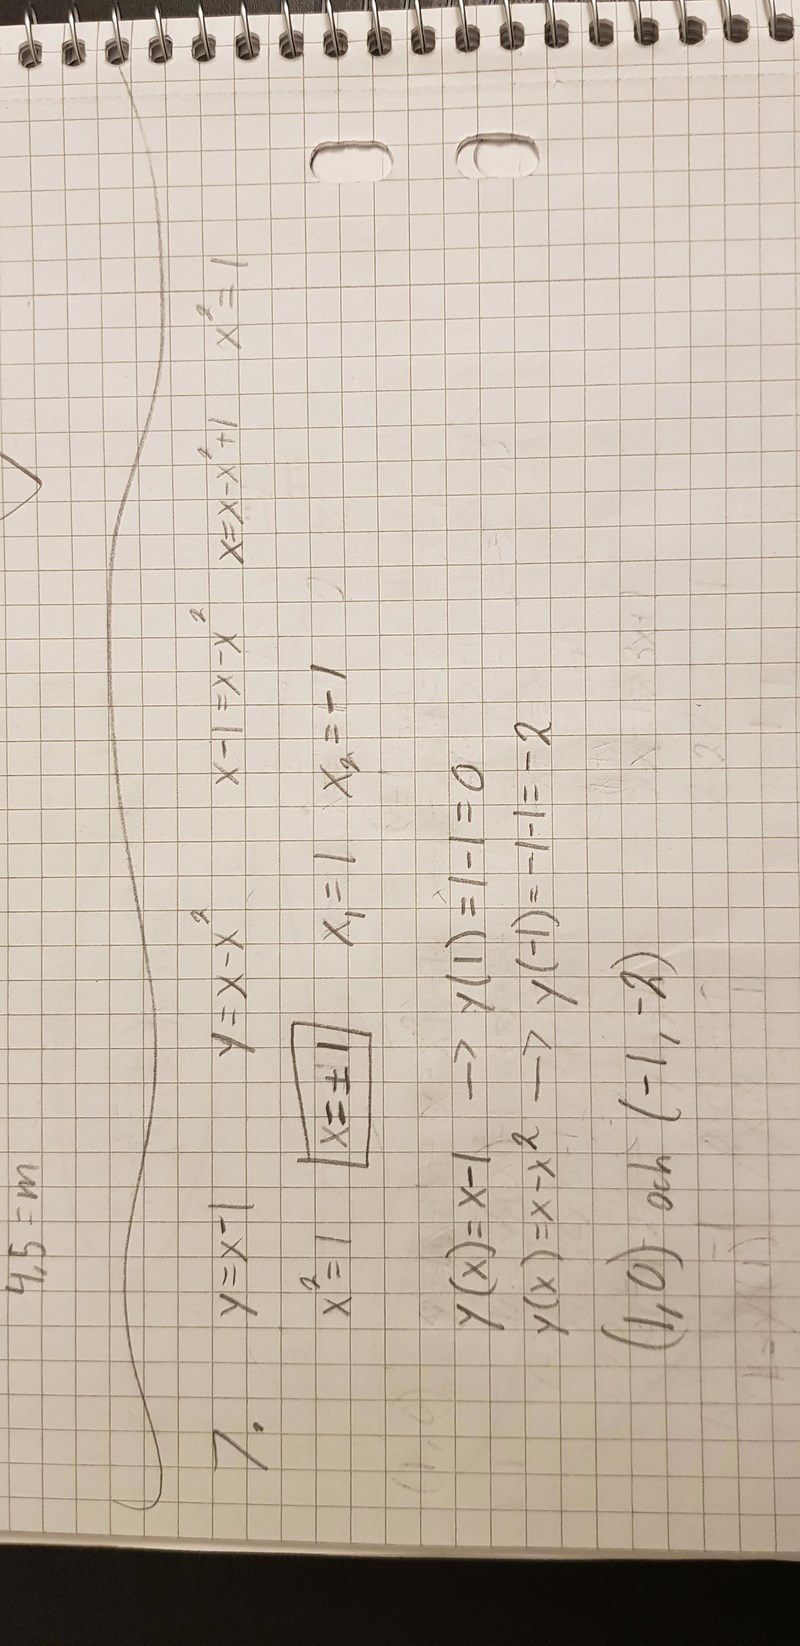 4,5=m
7. y=x-1 y=x-x² x-1=x-x² x=x-x²+1 x²=1
x²=1 x=±1 x₁=1 x₂=-1
y(x)=x-1 -> y(1)=1-1=0
y(x)=x-x² -> y(-1)=-1-1=-2
(1,0) och (-1,-2)